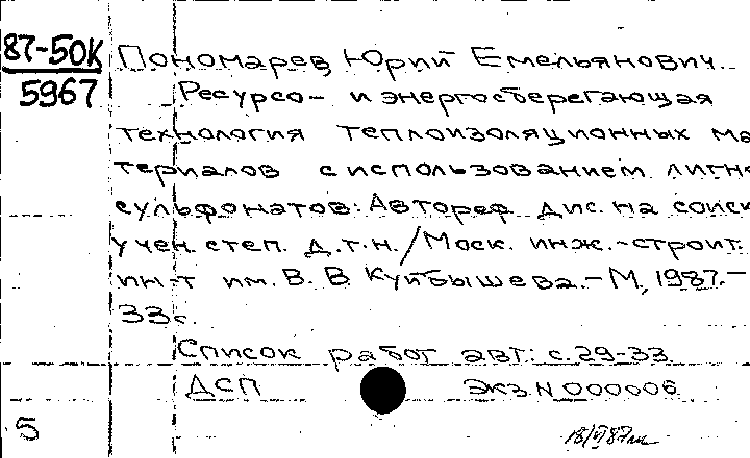 87-50К
5967
Пономарев Юрий Емельянович.
Ресурсо- и энергосберегающая
технология теплоизоляционных ма
териалов с использованием лигно
сульфонатов: Автореф. дис. на соиск.
учен. степ. д.т.н. / Моск. инж.-строит.
ин-т им. В. В. Куйбышева. – М., 1987. –
33 с.
Список работ авт.: с. 29-33.
ДСП экз N 000006
5
18/VI 87